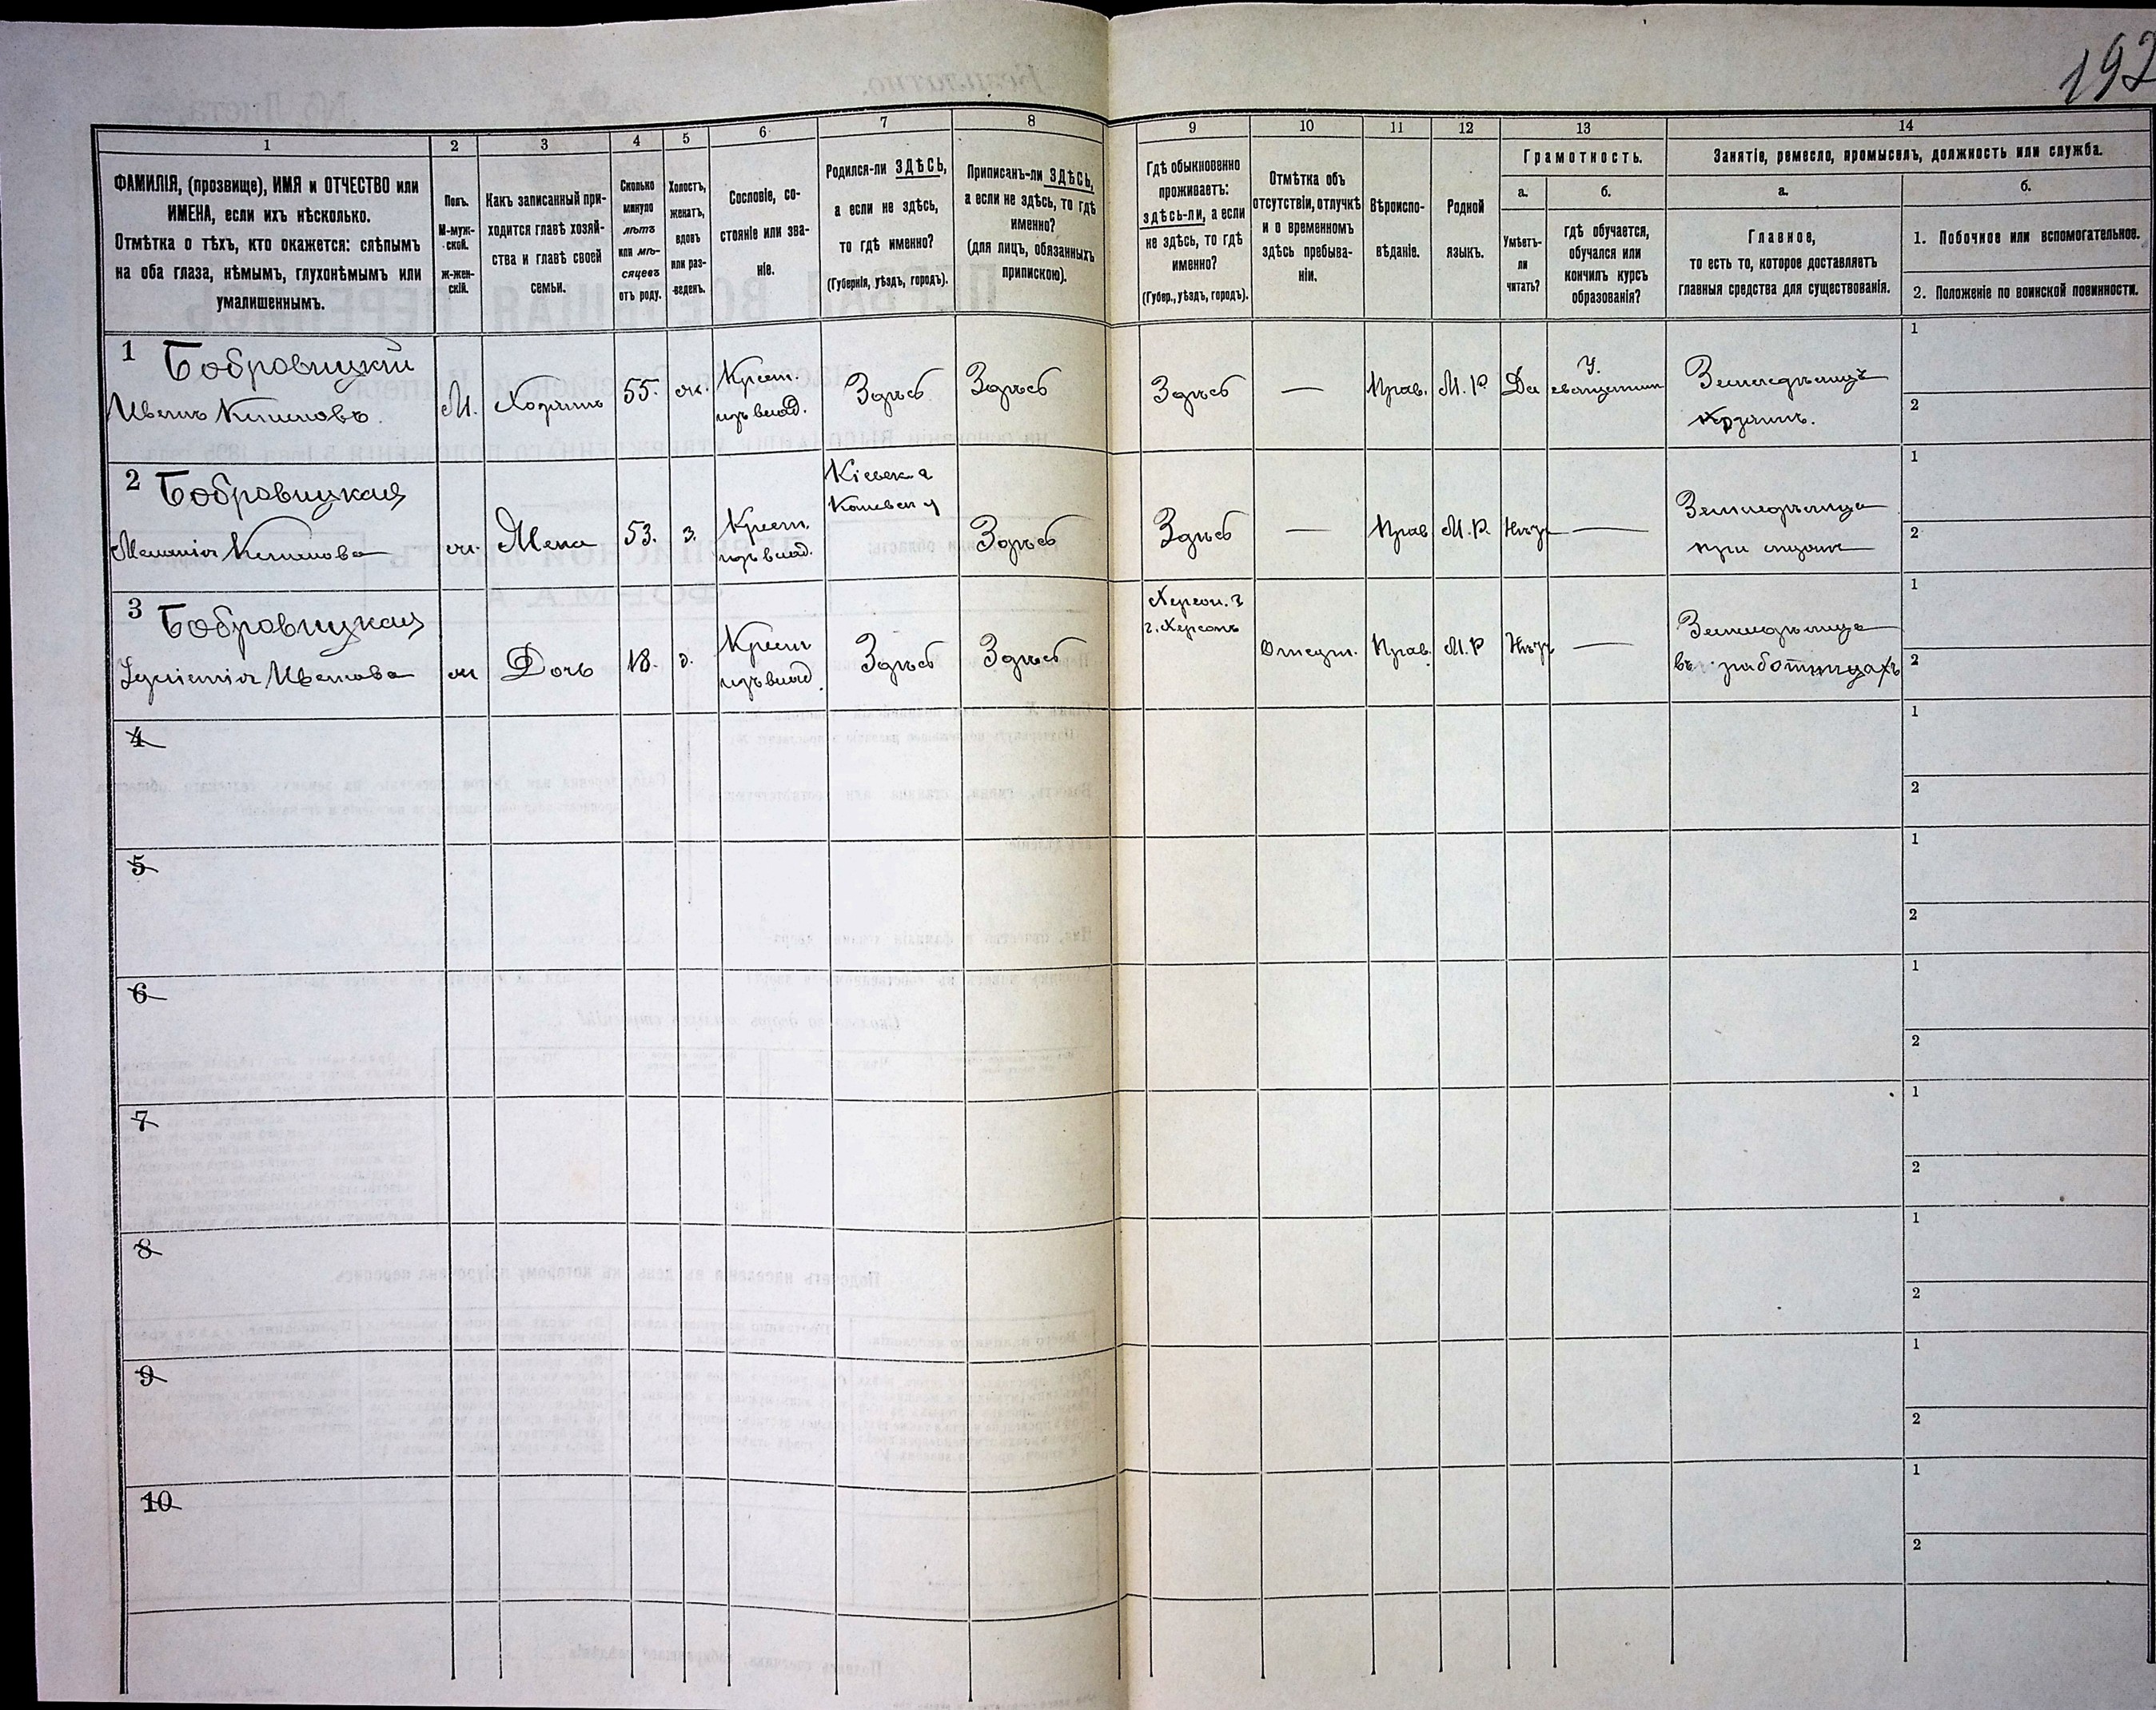 192
1
2
3
4
5
6
7
8
9
10
11
12
13
14
ФАМИЛІЯ, (прозвище), ИМЯ и ОТЧЕСТВО или
ИМЕНА, если ихъ нѣсколько.
Отмѣтка о тѣхъ, кто окажется: слѣпымъ
на оба глаза, нѣмымъ, глухонѣмымъ или
умалишеннымъ.
Полъ.
М-муж-
ской.
ж-жен-
скій.
Какъ записанный при-
ходится главѣ хозяй-
ства и главѣ своей
семьи.
Сколько
минуло
лѣтъ
или мѣ-
сяцевъ
отъ роду.
Холостъ,
женатъ,
вдовъ
или раз-
веденъ.
Сословіе, со-
стояніе или зва-
ніе.
Родился-ли ЗДѢСЬ,
а если не здѣсь,
то гдѣ именно?
(Губернія, уѣздъ, городъ).
Приписанъ-ли ЗДѢСЬ,
а если не здѣсь, то гдѣ
именно?
(для лицъ, обязанныхъ
припискою).
Гдѣ обыкновенно
проживаетъ:
здѣсь-ли, а если
не здѣсь, то гдѣ
именно?
(Губер., уѣздъ, городъ).
Отмѣтка объ
отсутствіи, отлучкѣ
и о временномъ
здѣсь пребыва-
ніи.
Вѣроиспо-
вѣданіе.
Родной
языкъ.
Грамотность.
а.
б.
Умѣетъ-
ли
читать?
гдѣ обучается,
обучался или
кончилъ курсъ
образованія?
Занятіе, ремесло, промыселъ, должность или служба.
а.
б.
Главное,
то есть то, которое доставляетъ
главныя средства для существованія.
1. Побочное или вспомогательное.
2. Положеніе по воинской повинности.
1 Бобровицкій
Иванъ Киповъ.
М.
Хозяинъ
55.
ж.
Крест.
изъ влад.
Здѣсь
Здѣсь
Здѣсь
—
Прав.
М. Р.
Да
У.
священника
Земледѣлецъ
хозяинъ.
1
2
2 Бобровицкая
Меланія
ж.
Жена
53.
з.
Крест.
изъ влад.
Кіевск г
Каневск у
Здѣсь
Здѣсь
—
Прав
М. Р.
Нѣтъ
—
Земледѣлица
при мужѣ
1
2
3 Бобровицкая
Иванова
ж
Дочь
18.
д.
Крест
изъ влад.
Здѣсь
Здѣсь
Херсон. г
г. Херсонъ
Отсут.
Прав.
М. Р
Нѣтъ
—
Земледѣлица
въ работницахъ
1
2
4
1
2
5
1
2
6
1
2
7
1
2
8
1
2
9
1
2
10
1
2